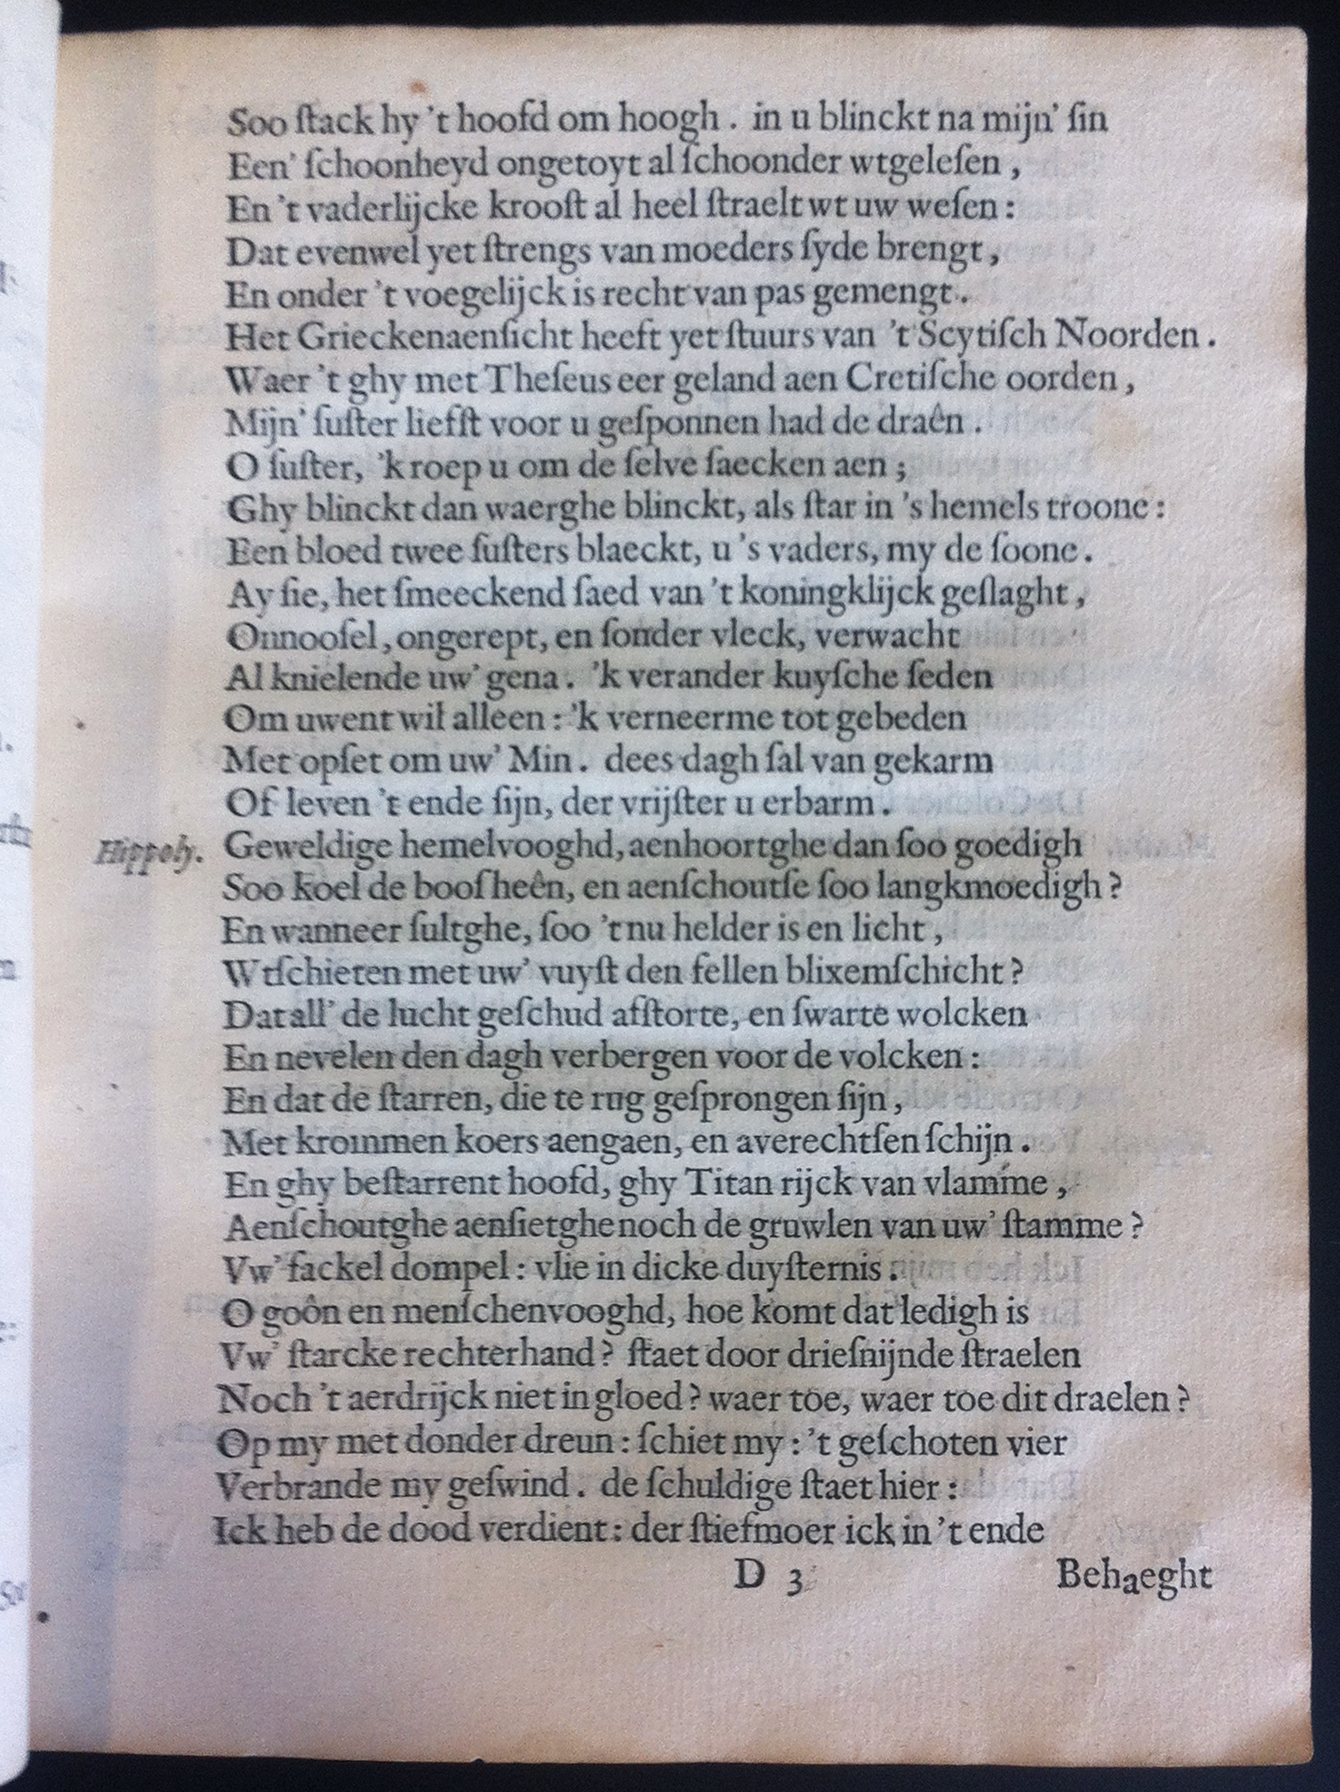 Soo ſtack hy 't hoofd om hoogh. in u blinckt na mijn' ſin
Een' ſchoonheyd ongetoyt al ſchoonder wtgeleſen,
En 't vaderlijcke krooſt al heel ſtraelt wt uw weſen:
Dat evenwel yet ſtrengs van moeders ſyde brengt,
En onder 't voegelijck is recht van pas gemengt.
Het Grieckenaenſicht heeft yet ſtuurs van 't Scytiſch Noorden.
Waer 't ghy met Theſeus eer geland aen Cretiſche oorden,
Mijn' ſuſter liefſt voor u geſponnen had de draên.
O ſuſter, 'k roep u om de ſelve ſaecken aen;
Ghy blinckt dan waerghe blinckt, als ſtar in 's hemels troone:
Een bloed twee ſuſters blaeckt, u 's vaders, my de ſoone.
Ay ſie, het ſmeeckend ſaed van 't koningklijck geſlaght,
Onnooſel, ongerept, en ſonder vleck, verwacht
Al knielende uw' gena. 'k verander kuyſche ſeden
Om uwent wil alleen: 'k verneerme tot gebeden
Met opſet om uw' Min. dees dagh ſal van gekarm
Of leven 't ende ſijn, der vrijſter u erbarm.
Hippoly. Geweldige hemelvooghd, aenhoortghe dan ſoo goedigh
Soo koel de booſheên, en aenſchoutſe ſoo langkmoedigh?
En wanneer ſultghe, ſoo 't nu helder is en licht,
Wtſchieten met uw' vuyſt den fellen blixemſchicht?
Dat all' de lucht geſchud afſtorte, en ſwarte wolcken
En nevelen den dagh verbergen voor de volcken:
En dat de ſtarren, die te rug geſprongen ſijn,
Met krommen koers aengaen, en averechtſen ſchijn.
En ghy beſtarrent hoofd, ghy Titan rijck van vlamme,
Aenſchoutghe aenſietghe noch de gruwlen van uw' ſtamme?
Vw' fackel dompel: vlie in dicke duyſternis.
O goôn en menſchenvooghd, hoe komt dat ledigh is
Vw' ſtarcke rechterhand? ſtaet door drieſnijnde ſtraelen
Noch 't aerdrijck niet in gloed? waer toe, waer toe dit draelen?
Op my met donder dreun: ſchiet my: 't geſchoten vier
Verbrande my geſwind. de ſchuldige ſtaet hier:
Ick heb de dood verdient: der ſtiefmoer ick in 't ende
D 3 Behaeght